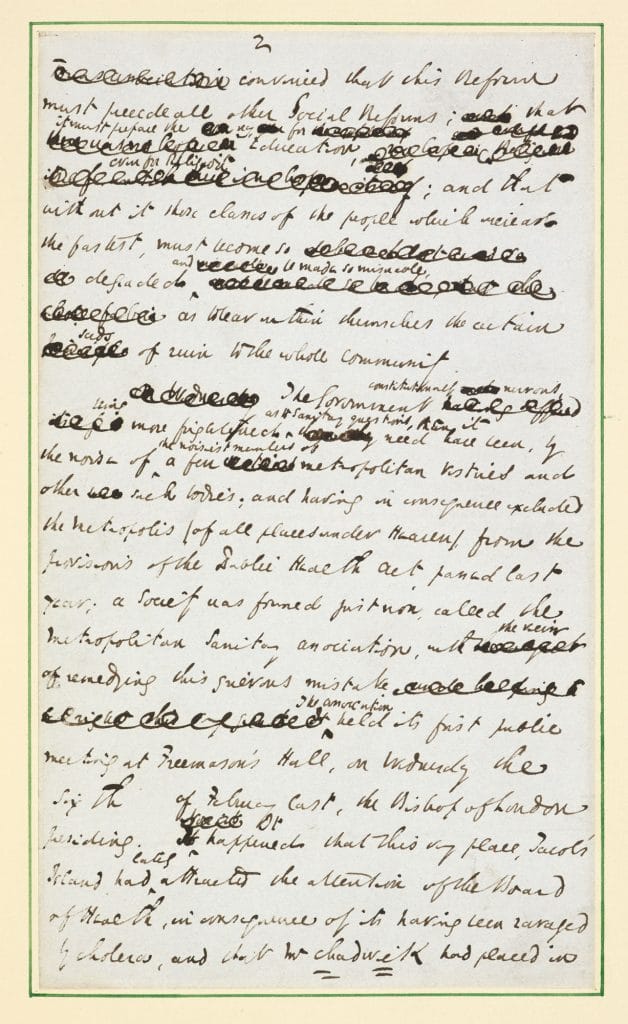 2
convinced that this Reform
must precede all other Social Reforms; that
it must prepare the way for
Education
even for Religion
; and that
without it those classes of the people which increase
the fastest, must become so
and be made so miserable,
degraded
as to bear within themselves the certain
seeds
of ruin to the whole community.
constitutionally nervous
The Government
being as to Sanitary questions, than it
more frightened need have been, by
the noisiest members of
the noise of a few metropolitan vestries and
other such bodies; and having in consequence excluded
the metropolis (of all places under Heaven) from the
provisions of the Public Health Act, passed last
year; a Society was formed just now, called the
the view
Metropolitan Sanitary association, with
of remedying this grievous mistake
The association
held its first public
meeting at Freemason's Hall, on Wednesday the
Sixth of February last, the Bishop of London
presiding. It happened that this very place, Jacob's
lately
Island, had attracted the attention of the Board
of Health, in consequence of its having been ravaged
by cholera, and that Mr Chadwick had placed in